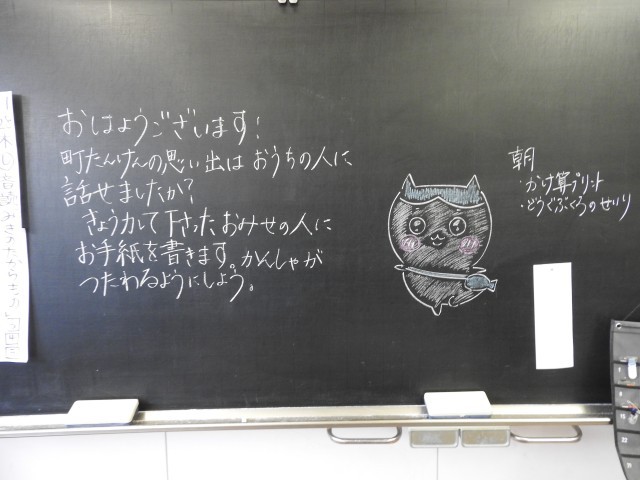 おはようございます!
町たんけんの思い出は おうちの人に
話せましたか?
きょう力して下さったおみせの人に
お手紙を書きます。かんしゃが
つたわるようにしよう。
朝
・かけ算プリント
・どうぐぶくろのせいり